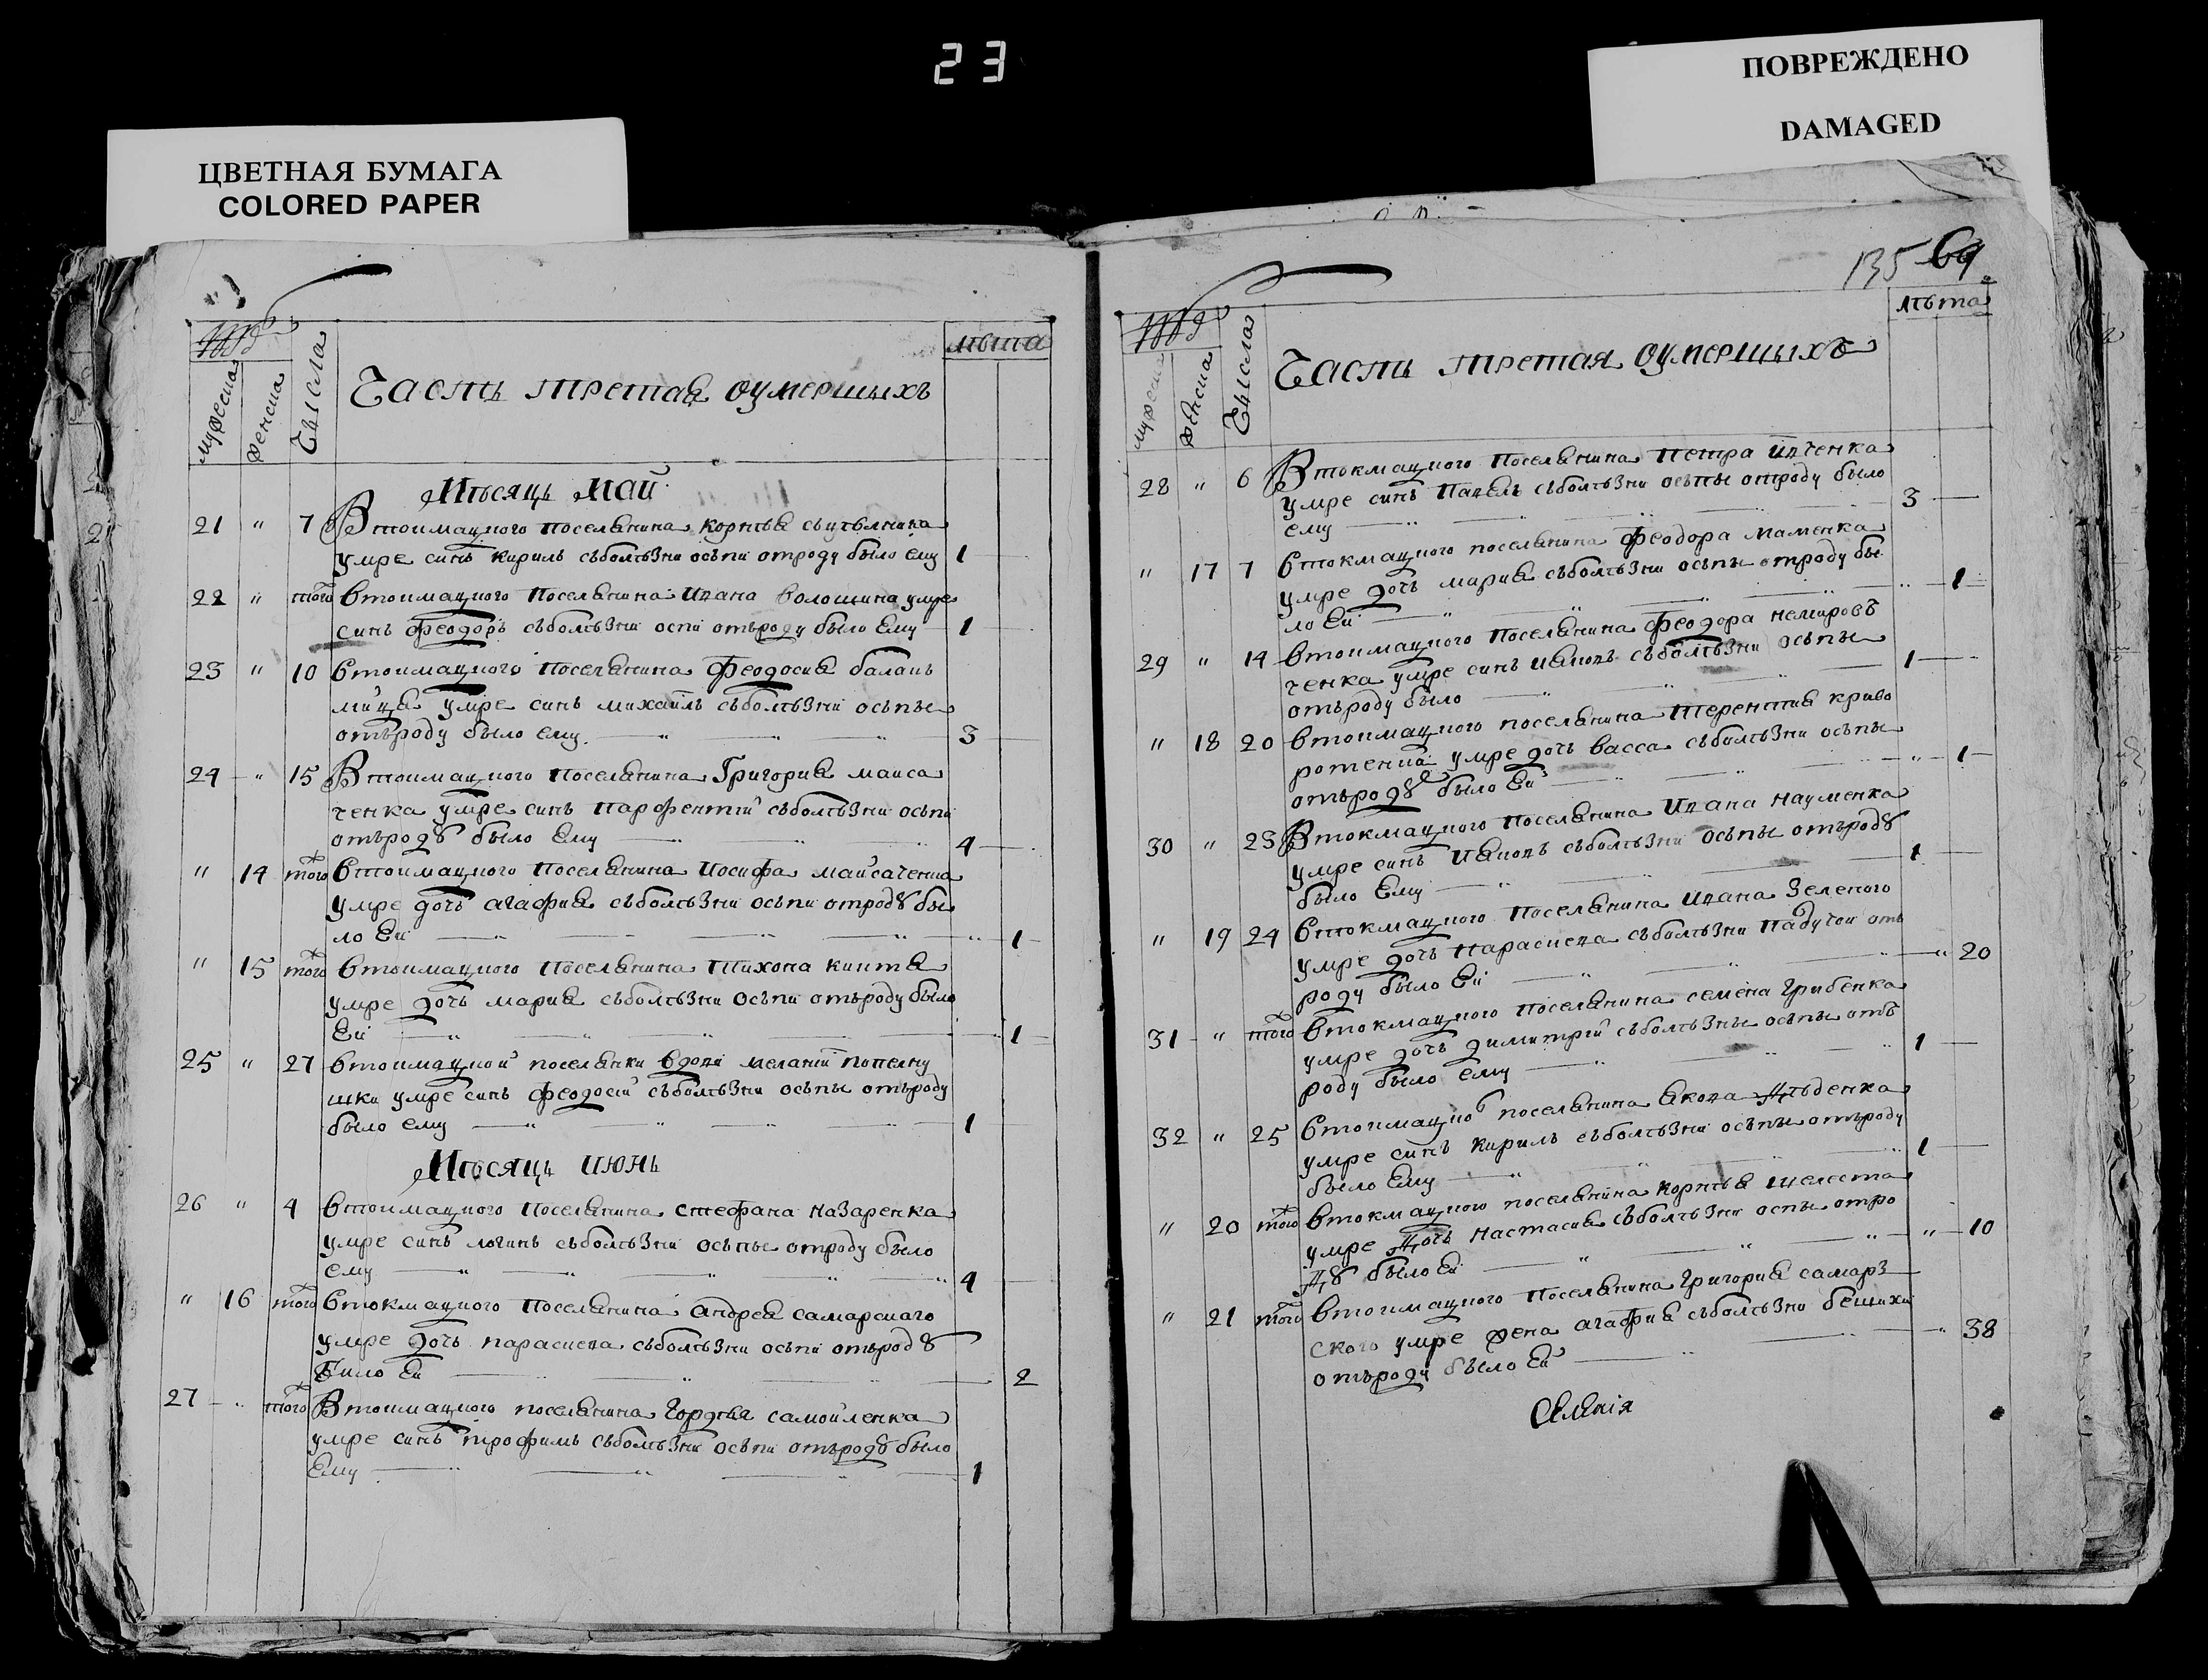 23
ЦВЕТНАЯ БУМАГА
COLORED PAPER
ПОВРЕЖДЕНО
DAMAGED
лѣта
мужеска
женска
Чысла
Часть третая оумершыхъ
Мѣсяць май
21 " 7 Втокмацкого поселянина корнѣя
умре синъ кирилъ съболѣзни осьпи отроду было ему 1
22 " того втокмацкого поселянина ивана волошина умре
синъ феодоръ съболѣзни оспи отъроду было ему 1
23 " 10 втокмацкого поселянина феодосия балань
умре синъ михаилъ съболѣзни осьпы
отъроду было ему 3
24 " 15 Втокмацкого поселянина Григория моиса
ченка умре синъ парфентий съболѣзни осьпи
отъродꙋ было ему 4
" 14 того втокмацкого поселянина иосифа мойсаченка
умре дочь агафия съболѣзни осьпи отродꙋ бы
ло ей 1
" 15 того втокмацкого поселянина тихона
умре дочь мария съболѣзни осьпи отъроду было
ей 1
25 " 27 втокмацкой поселянки вдови меланий попелну
шки умре синъ феодосий съболѣзни осьпы отъроду
было ему 1
Мѣсяць июнь
26 " 4 втокмацкого поселянина стефана назаренка
умре синъ логинъ съболѣзни осьпы отроду было
ему 4
" 16 того втокмацкого поселянина андрея самарского
умре дочь параскева съболѣзни осьпи отъродꙋ
било ей 2
27 " того Втокмацкого поселянина гордѣя самойленка
умре синъ трофимъ съболѣзни осьпи отъродꙋ было
ему 1
135 69
лѣта
мужеска
женска
Чысла
Часть третая оумершыхъ
28 " 6 Втокмацкого поселянина петра ивченка
умре синъ павелъ съболѣзни осьпы отроду было
ему 3
" 17 7 втокмацкого поселянина феодора маменка
умре дочь мария съболѣзни осьпы отроду бы
ло ей 1
29 " 14 втокмацкого поселянина феодора немировъ
ченка умре синъ иаковъ съболѣзни осьпы
отъроду было 1
" 18 20 втокмацкого поселянина терентия криво
ротенка умре дочь васса съболѣзни осьпы
отъродꙋ было ей 1
30 " 23 Втокмацкого поселянина ивана науменка
умре синъ иаковъ съболѣзни осьпы отъродꙋ
было ему 1
" 19 24 втокмацкого поселянина ивана зеленого
умре дочь параскева съболѣзни падучой отъ
роду было ей 20
31 " того втокмацкого поселянина семена грибенка
умре дочь димитрий съболѣзны осьпы отъ
роду было ему 1
32 " 25 втокмацко поселянина якова дѣденка
умре синъ кирилъ съболѣзни осьпы отъроду
было ему 1
" 20 того втокмацкого поселянина корнѣя шелеста
умре дочь настасия съболѣзни оспы отро
дꙋ было ей 10
" 21 того втокмацкого поселянина григория самар
ского умре жена агафия съболѣзни бешихи
отъроду было ей 38